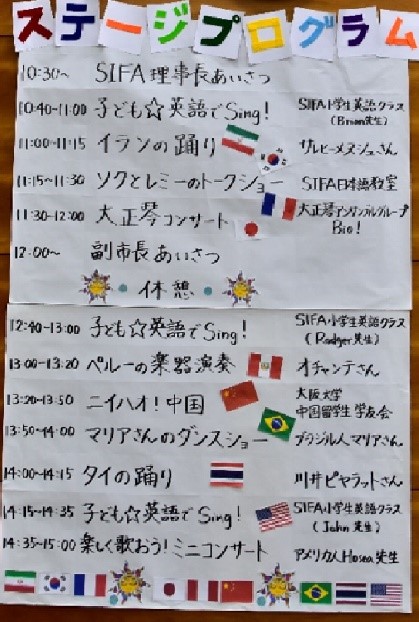 ステージプログラム
10:30~ SIFA理事長あいさつ
10:40-11:00 子ども☆英語でSing! SIFA小学生英語クラス
(Brian先生)
11:00~11:15 イランの踊り サルビーメヌシュさん
11:15~11:30 ソクとレミーのトークショー SIFA日本語教室
11:30-12:00 大正琴コンサート 大正琴アンサンブルグループ
Bio!
12:00~ 副市長あいさつ
休憩
12:40-13:00 子ども☆英語でSing! SIFA小学生英語クラス
(Rodger先生)
13:00-13:20 ペルーの楽器演奏 オチャンテさん
13:20-13:50 ニイハオ!中国 大阪大学
中国留学生学友会
13:50-14:00 マリアさんのダンスショー ブラジル人マリアさん
14:00~14:15 タイの踊り 川井ピヤラットさん
14:15~14:35 子ども☆英語でSing! SIFA小学生英語クラス
(John先生)
14:35~15:00 楽しく歌おう!ミニコンサート アメリカ人Hosea先生